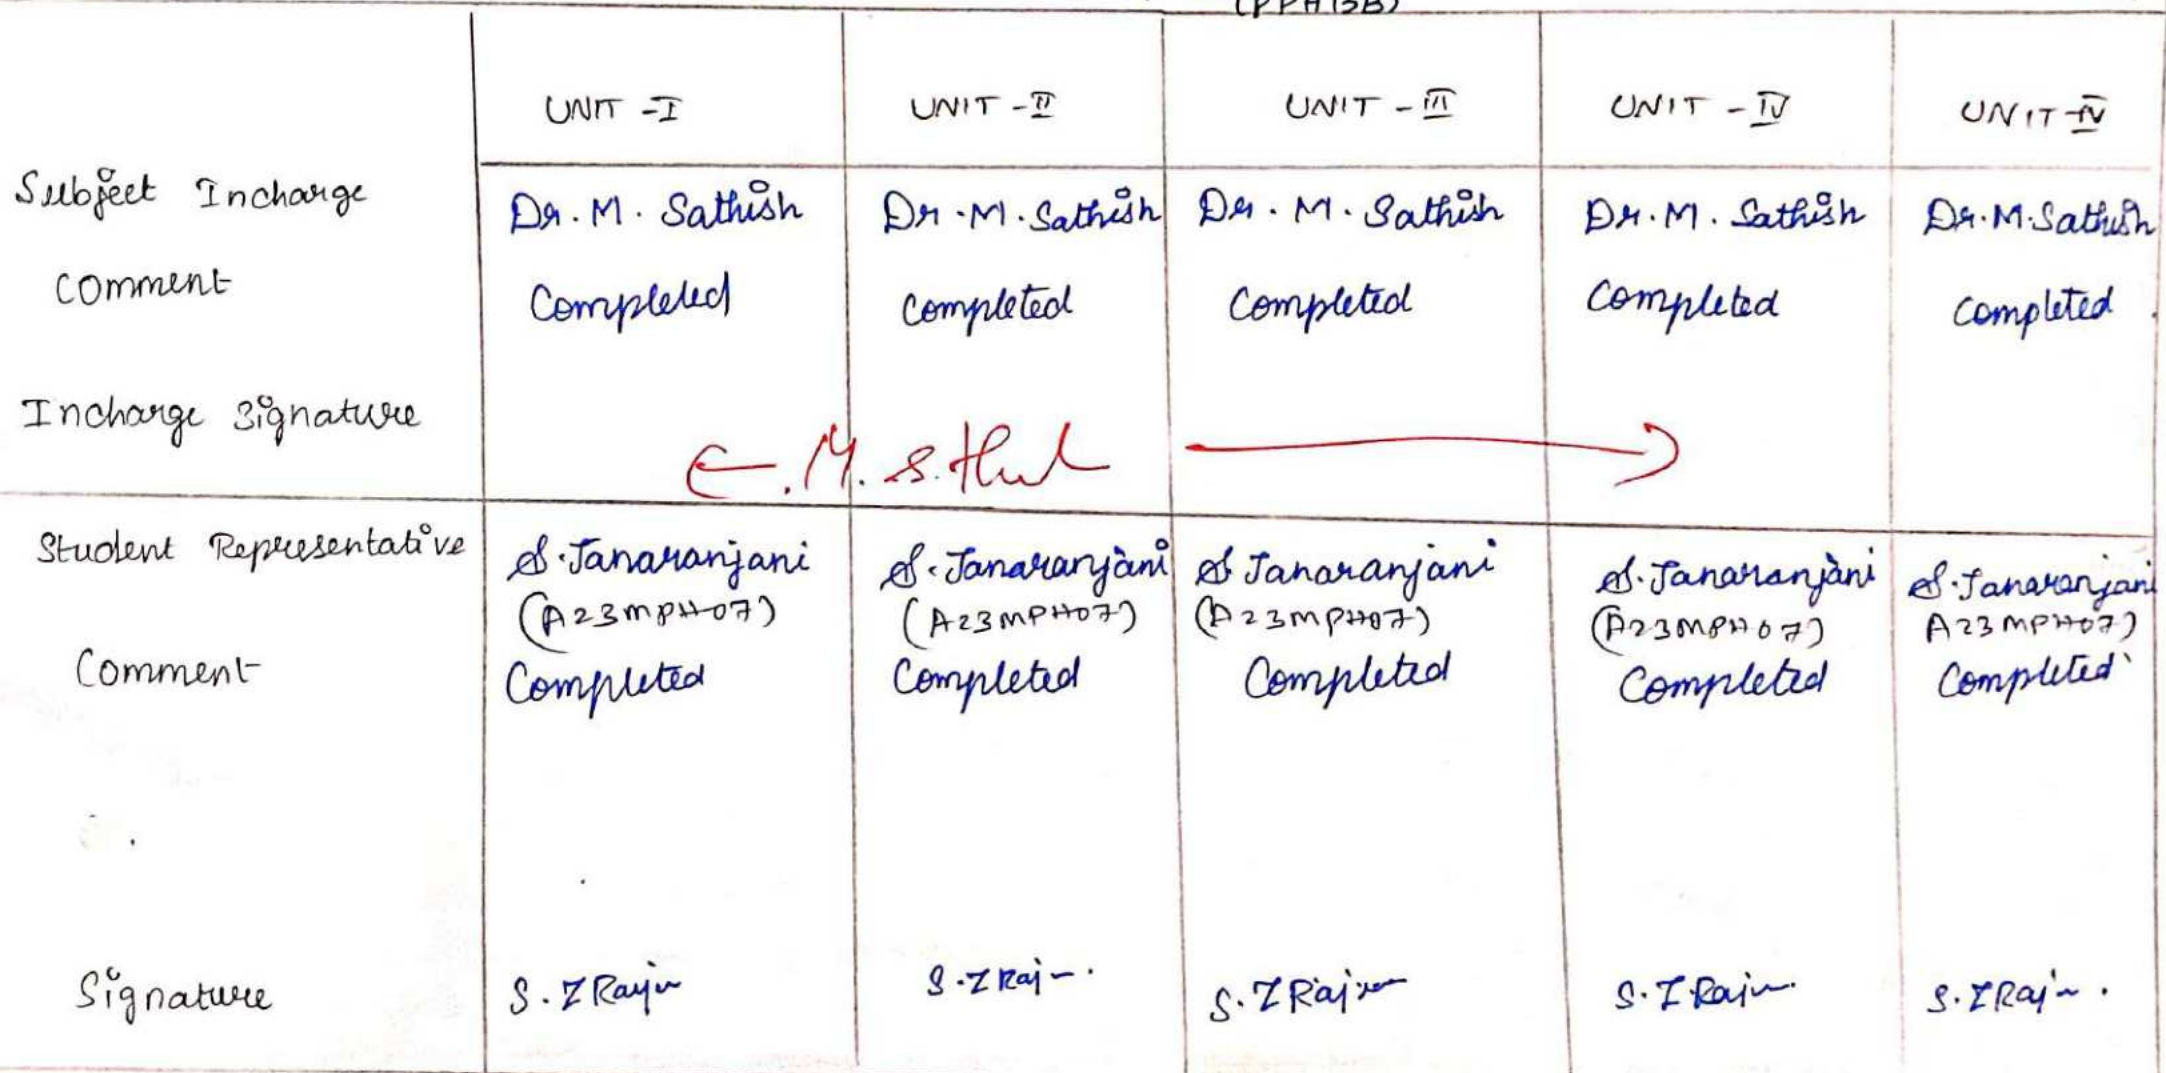 (PPH13B)
UNIT - I UNIT - II UNIT - III UNIT - IV UNIT - IV
Subject Incharge Dr. M. Sathish Dr. M. Sathish Dr. M. Sathish Dr. M. Sathish Dr. M. Sathish
Comment Completed Completed Completed Completed Completed
Incharge Signature
Student Representative S. Janaranjani S. Janaranjani S. Janaranjani S. Janaranjani S. Janaranjani
(A23MPH07) (A23MPH07) (A23MPH07) (A23MPH07) A23MPH07)
Comment Completed Completed Completed Completed Completed
Signature